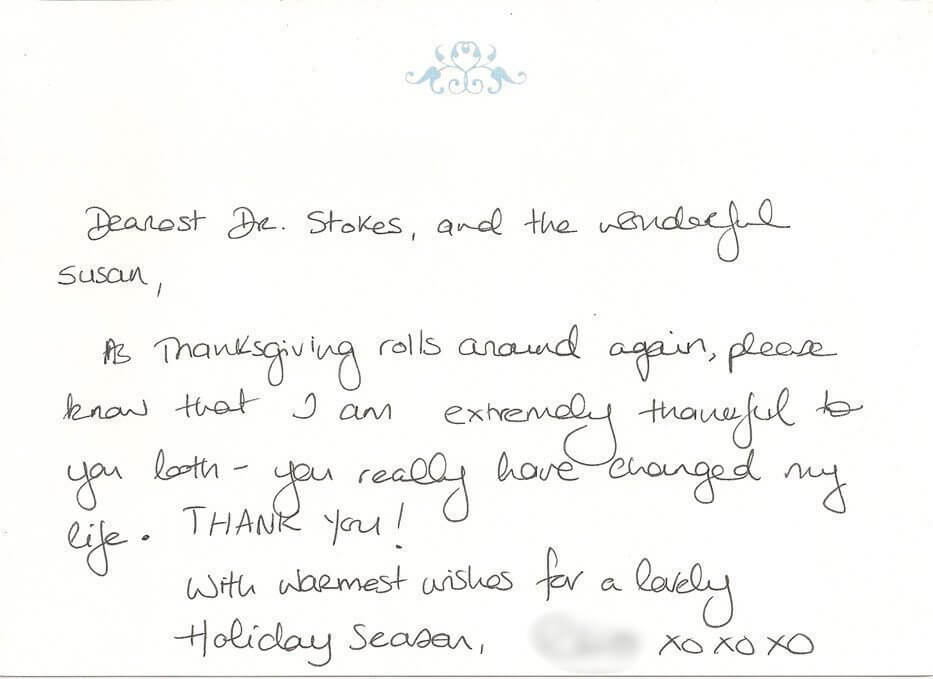 Dearest Dr. Stokes, and the wonderful
Susan,
As Thanksgiving rolls around again, please
know that I am extremely thankful to
you both - you really have changed my
life. THANK you!
With warmest wishes for a lovely
Holiday Season, XO XO XO